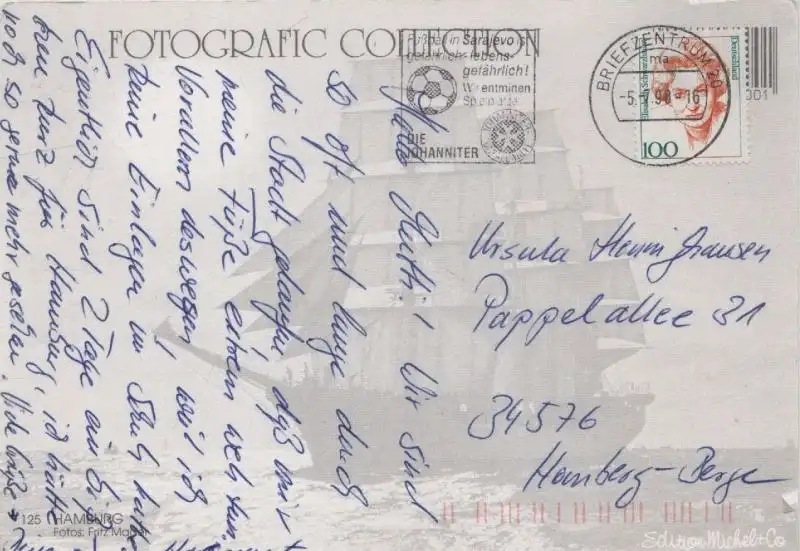 FOTOGRAFIC COLLECTION
Fußball in Sarajevo ist
gefährlich - lebens-
gefährlich!
Wir entminen
Spielplätze.
DIE
JOHANNITER
BRIEFZENTRUM 20
ma
-5. 98 -16
Deutschland
100
001
Hallo Mutti! Wir sind
so oft und lange durch
die Stadt gelaufen, daß mir
meine Füße extrem weh tun.
Vorallem deswegen, weil ich
keine Einlagen im Schuh habe
Eigentlich sind 2 Tage
kurz für Hamburg, ich hätte
noch so gerne mehr gesehen. Viele Grüße
Ursula
Pappelallee 31
34576
Homberg-Berge
125 HAMBURG
Fotos: Fritz Mader
Edition Michel+Co